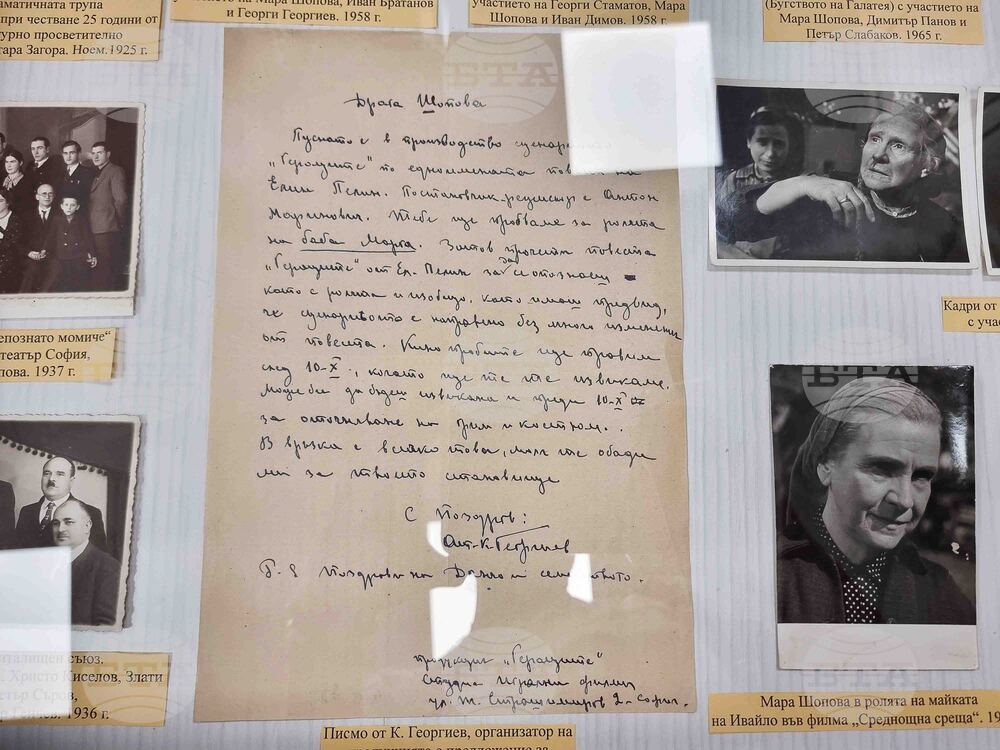 аматичната трупа
при честване 25 години от
турно просветително
тара Загора. Ноем.1925 г.
участието на Мара Шопова, Иван Братанов
и Георги Георгиев. 1958 г.
участието на Георги Стаматов, Мара
Шопова и Иван Димов. 1958 г.
(Бугството на Галатея) с участието на
Мара Шопова, Димитър Панов и
Петър Слабаков. 1965 г.
БТА
Драга Шопова
Пуснато е в производство сценарият
„Гераците" по едноименната повест на
Елин Пелин. Постановчик-режисьор е Антон
Маринович. Тебе ще пробваме за ролята
на баба Марга. Затов прочети повестта
„Гераците" от Ел. Пелин за да се опознаеш
като с ролята и изобщо, като имаш предвид,
че сценарият е направен без много изменения
от повестта. Кино пробите ще правим
след 10-X., когато ще те извикаме.
Може би да бъдеш извикана и преди 10-X
за опитване на грим и костюм.
В връзка с всичко това, моля те обади
ми за твоето становище
С поздрав:
К. Георгиев
P.S Поздрави на семейството.
продукция „Гераците"
Студия игрални филми
ул. Т. Страшимиров 2 - София.
епознато момиче“
театър София,
пова. 1937 г.
италищен съюз.
Христо Киселов, Злати
етър Съров,
1936 г.
Кадри от
с учас
Мара Шопова в ролята на майката
на Ивайло във филма „Среднощна среща“. 19
Писмо от К. Георгиев, организатор на